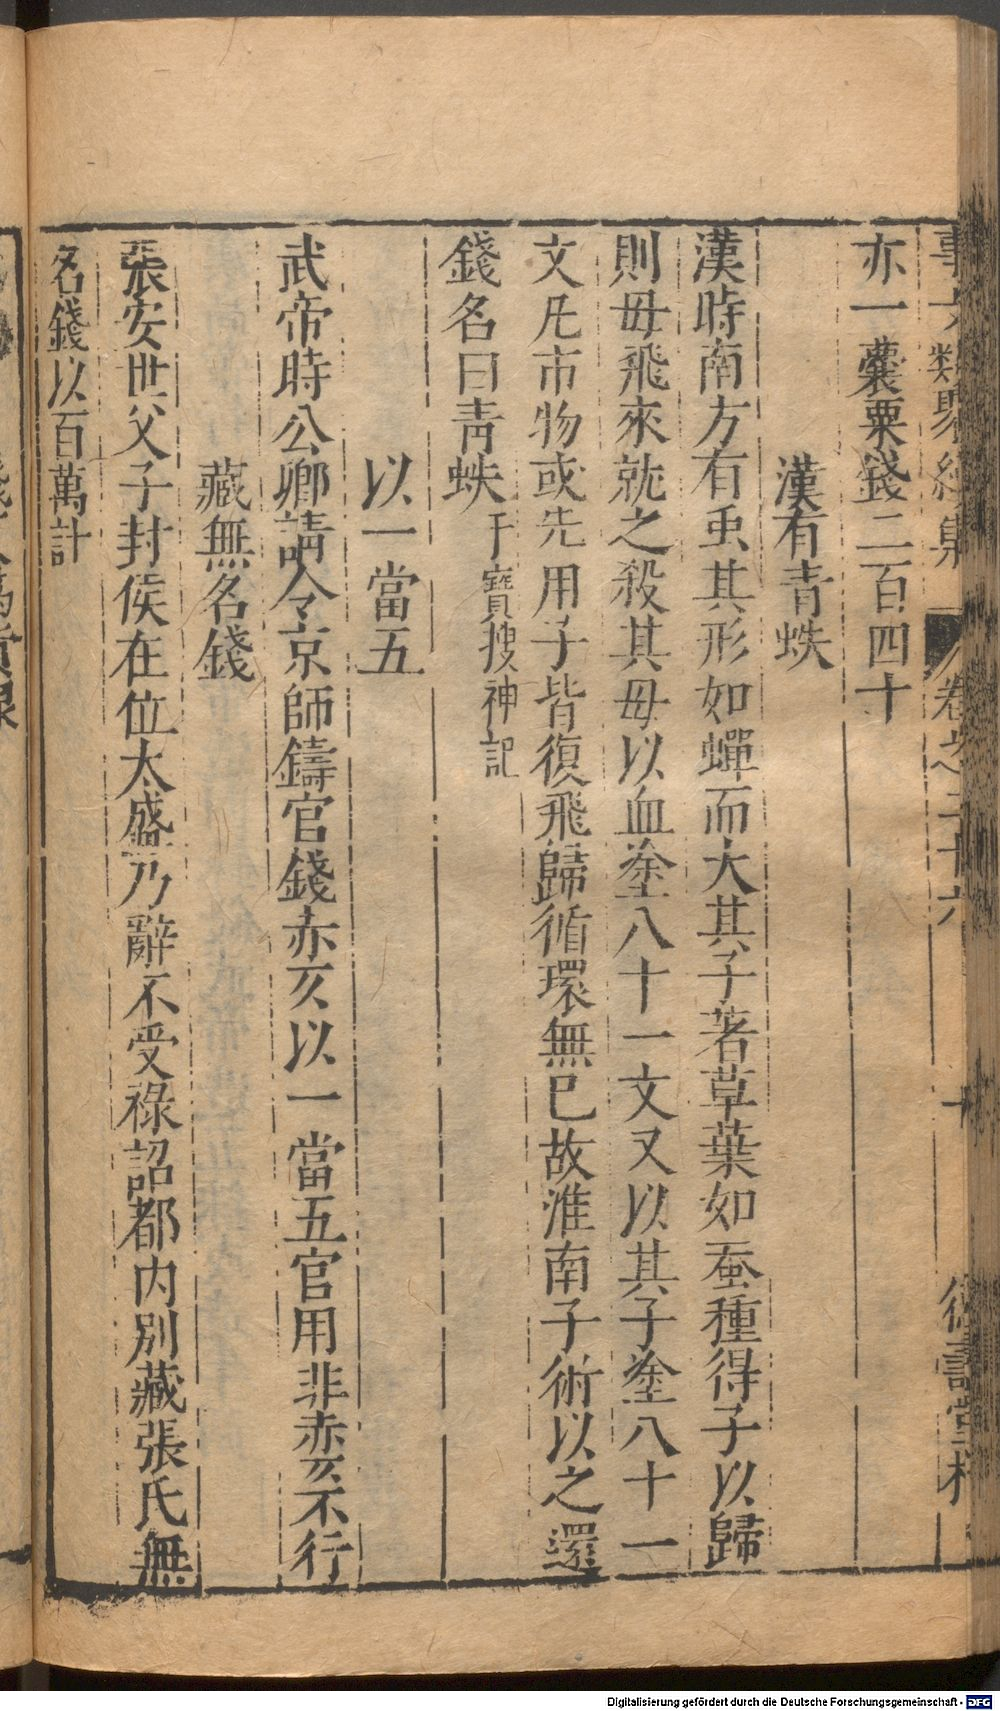 亦一囊粟錢二百四十
漢有青蚨
漢時南方有虫其形如蟬而大其子著草葉如蚕種得子以歸
則毋飛來就之殺其毋以血塗八十一文又以其子塗八十一
文凡市物或先用子皆復飛歸循環無已故淮南子術以之還
錢名曰青蚨干寶搜神記
以一當五
武帝時公卿請令京師鑄官錢赤仄以一當五官用非赤仄不行
藏無名錢
張安世父子封侯在位太盛乃辭不受祿詔都内別藏張氏無
名錢以百萬計
Digitalisierung gefördert durch die Deutsche Forschungsgemeinschaft - DFG